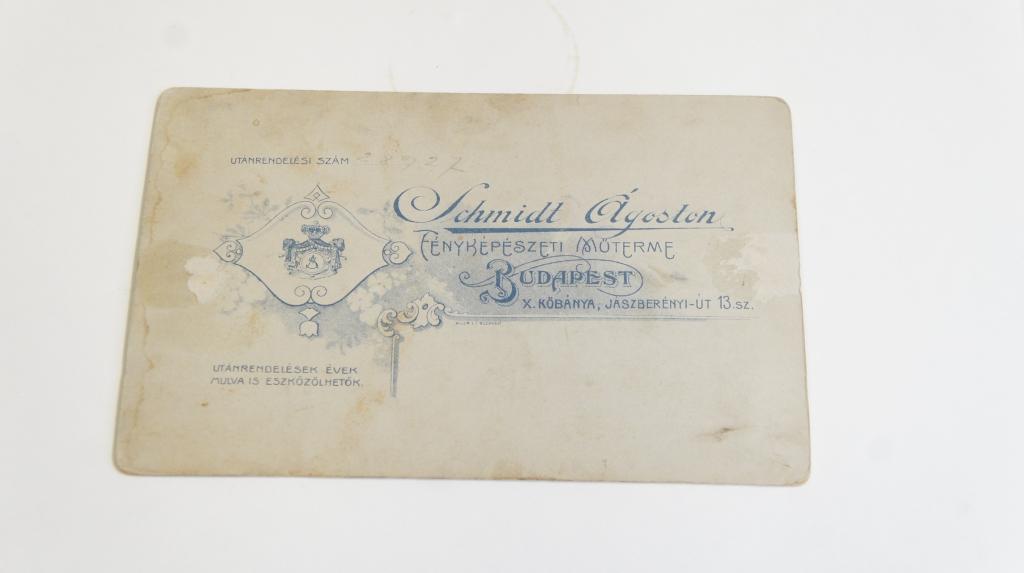 UTÁNRENDELÉSI SZÁM 28927
Schmidt Ágoston
FÉNYKÉPÉSZETI MŰTERME
BUDAPEST
X. KŐBÁNYA, JÁSZBERÉNYI-ÚT 13.SZ.
UTÁNRENDELÉSEK ÉVEK
MULVA IS ESZKÖZÖLHETŐK.